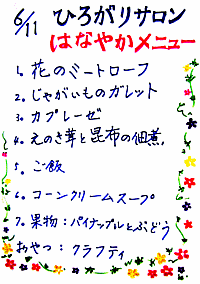 6/11 ひろがりサロン
はなやかメニュー
1. 花のミートローフ
2. じゃがいものガレット
3. カプレーゼ
4. えのき茸と昆布の佃煮
5. ご飯
6. コーンクリームスープ
7. 果物：パイナップルとぶどう
おやつ：クラフティ